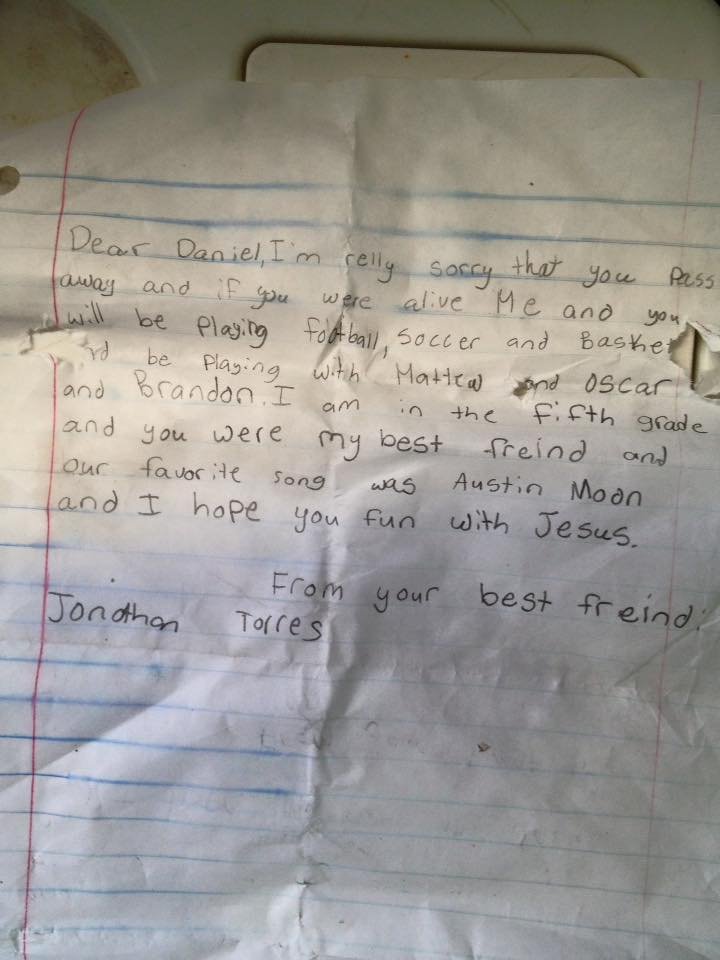 Dear Daniel, I'm relly sorry that you pass
away and if you were alive Me and you
will be playing football, soccer and Basket
be playing with Mattew and Oscar
and Brandon. I am in the fifth grade
and you were my best freind and
our favorite song was Austin Moon
and I hope you fun with Jesus.
From your best freind:
Jonothan Torres